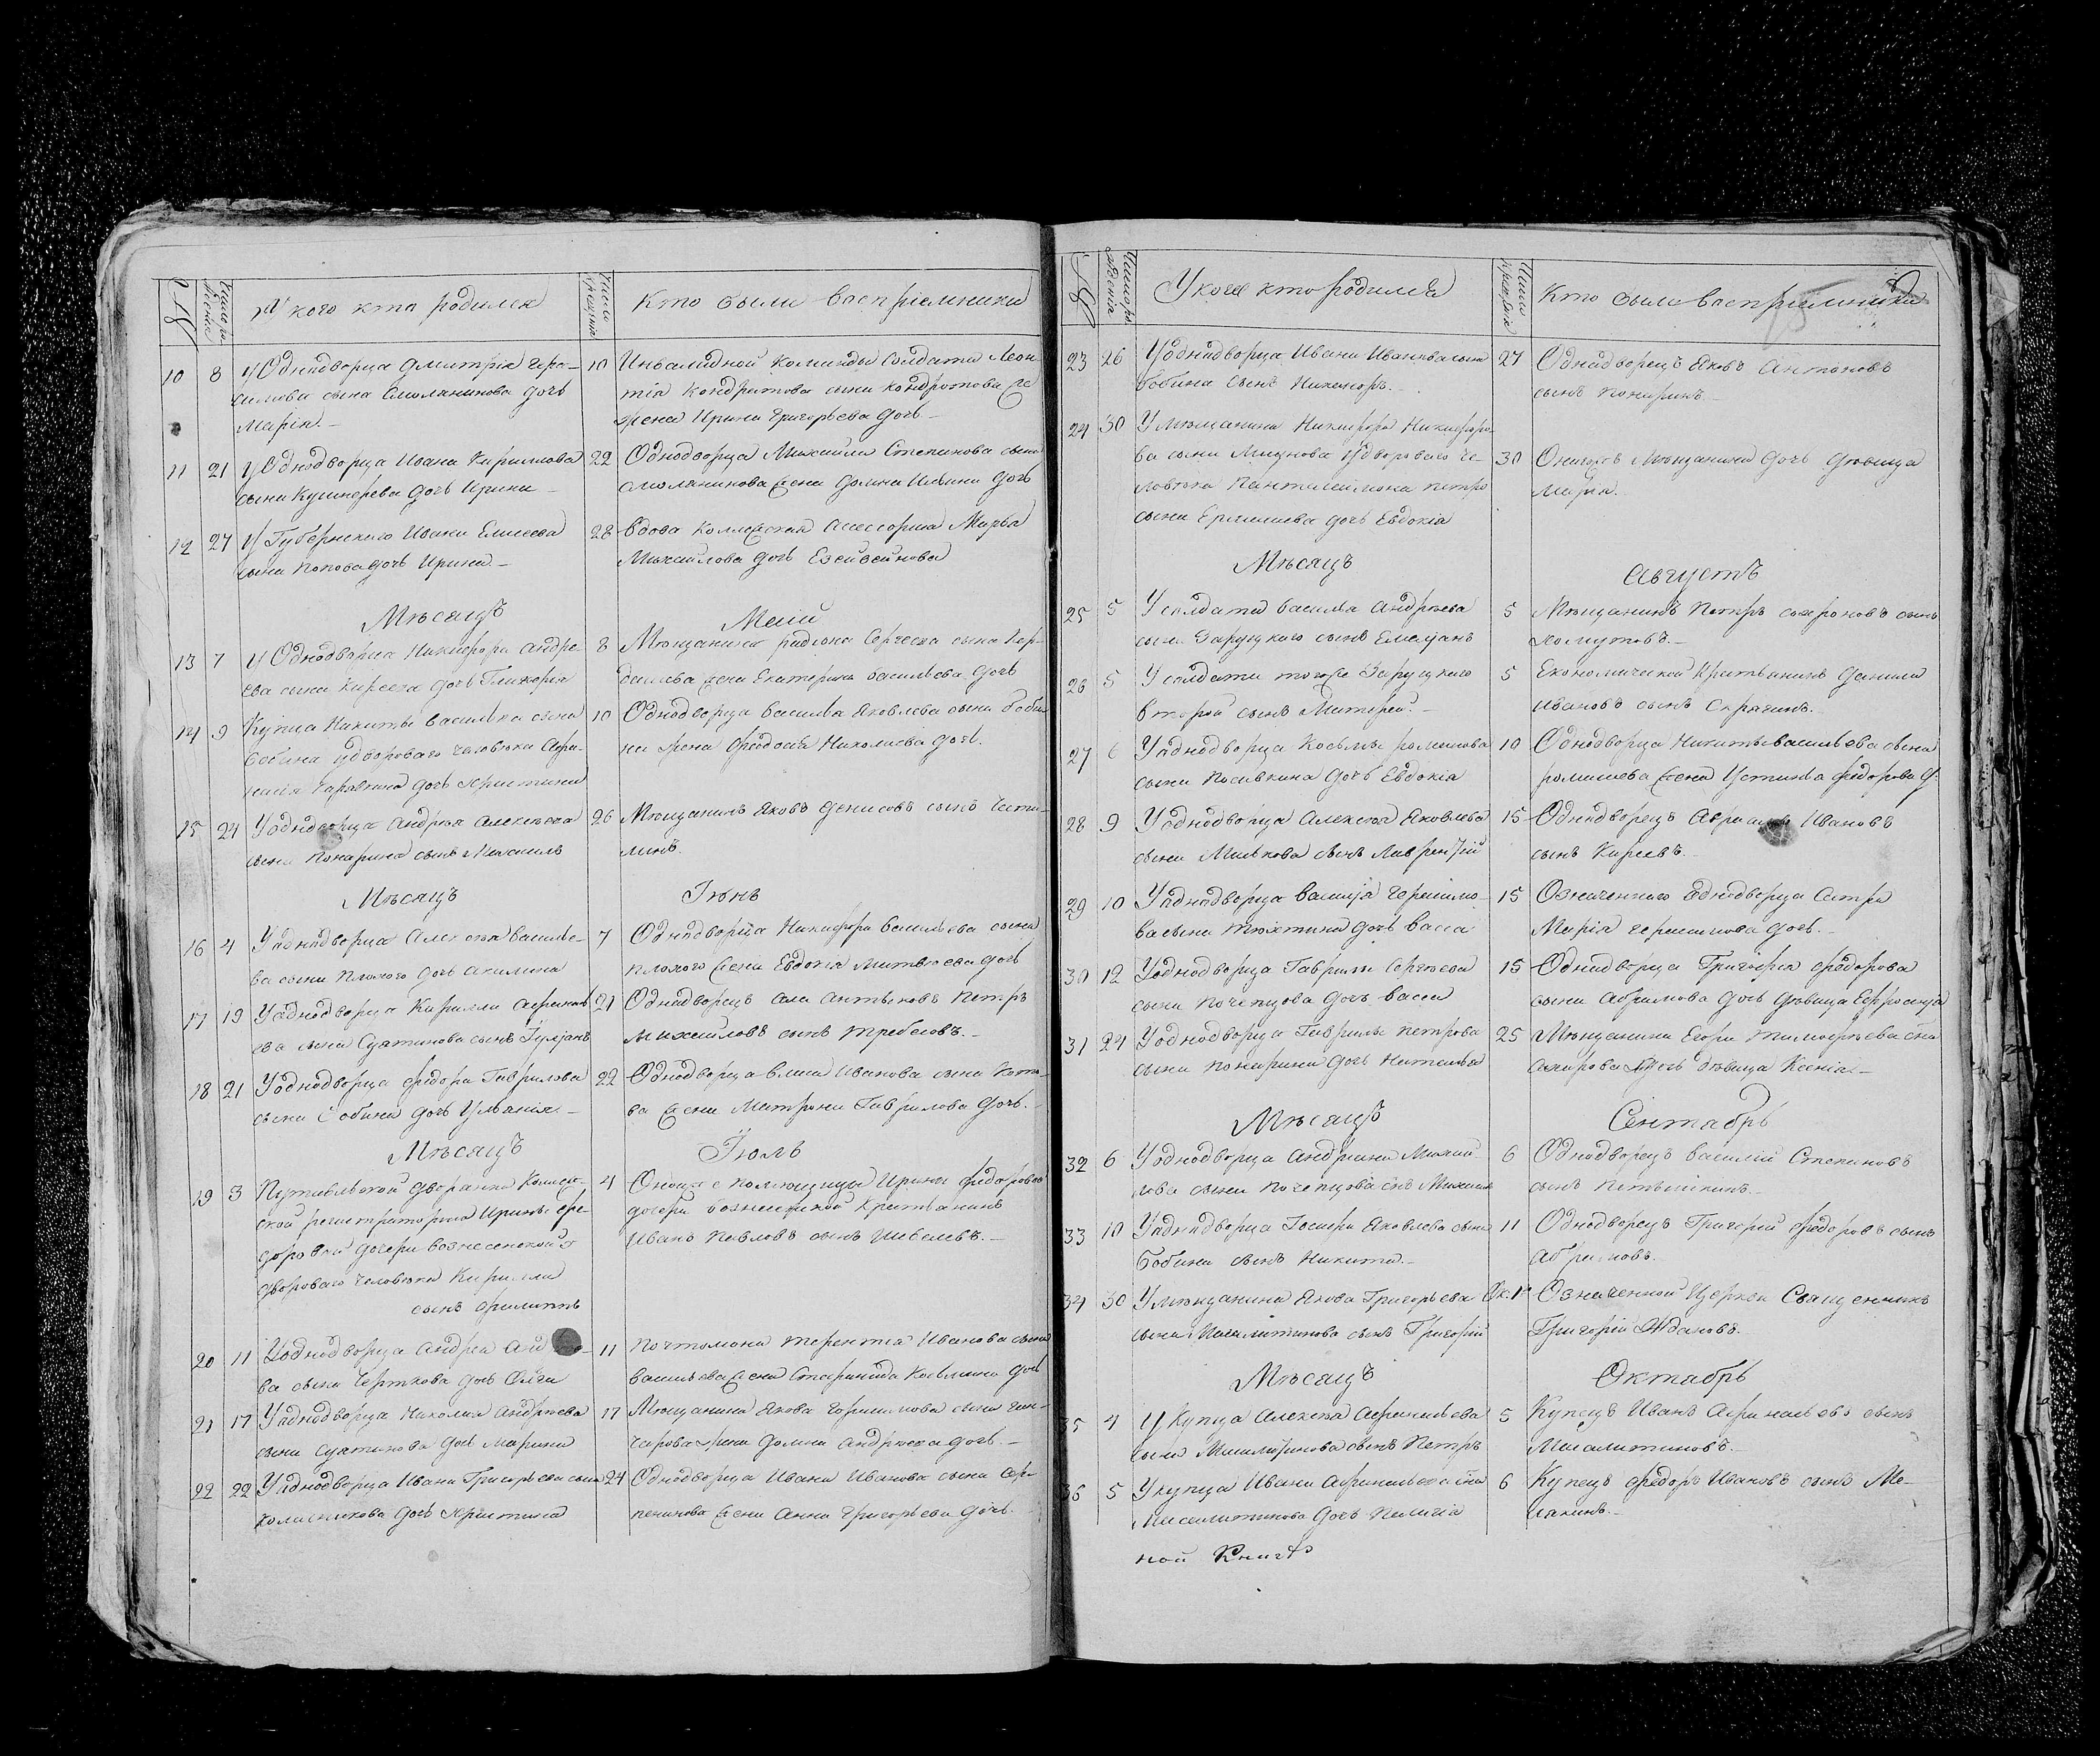 №
Число рожденія
У кого кто родился
Число крещенія
Кто были восприемники
10 8 У Однодворца Дмитрія Гера-
симова сына Смольянинова дочь
Марія.
10 Инвалидной команды Солдата Леон
тія Кондратова сына Кондратова же
жена Ирина Григорьева дочь
11 21 У Однодворца Ивана Кирилова
сына Кушнерева дочь Ирина
22 Однодворца Михаила Степанова сына
Смольянинова жена Домна Ильина дочь
12 27 У Губернскаго Ивана Елисеева
сына Попова дочь Ирина
28 Вдова Колежская Асессорша Марѳа
Михайлова дочь
Мѣсяцъ Маій
13 7 У Однодворца Никифора Андре-
ева сына Киреева дочь Гликерія
8 Мѣщанина Радіона Сергеева сына
жена Екатерина Васильева дочь
14 9 Купца Никиты Васильева сына
Бобина у дворового человека Афа-
насія дочь Христина
10 Однодворца Василья Яковлева сына Боби
на жена Феодосія Николаева дочь.
15 24 У однодворца Андрея Алексѣева
сына Понарина сынъ Михаилъ
26 Мѣщанинъ Яковъ Денисовъ сынъ

Мѣсяцъ Іюнь
16 4 У однодворца Алексѣя Василье-
ва сына Плохого дочь Акилина
7 Однодворца Никифора Васильева сына
Плохого жена Евдокія Матвѣева дочь
17 19 У однодворца Кирилла Афанась
ева сына Суятинова сынъ Іуліанъ
21 Однодворецъ Петръ
Михайловъ сынъ Требесовъ.
18 21 У однодворца Федора Гаврилова
сына Собина дочь Ульянія
22 Однодворца Ивана
ва жена Матрона Гаврилова дочь.
Мѣсяцъ Іюль
19 3 Путивльской дворянки Колеж-
ской регистраторши Ирины Фе-
доровой дочери Вознесенской у
двороваго человѣка Кирилла
сынъ Филиппъ
4 Ирины Федоровой
дочери Вознесенской Крестьянинъ
Иванъ Павловъ сынъ Шевелевъ.
20 11 У однодворца Андрея
ва сына Черткова дочь Ольга
11 Почтомона Терентія Иванова сына
Васильева жена Козьмина дочь
21 17 У однодворца Николая Андреева
сына Суятинова дочь Марина
17 Мѣщанина Якова Герасимова сына Гон-
чарова жена Домна Андреева дочь.
22 22 У однодворца Ивана Григорьева сына
Колесникова дочь Христина
24 Однодворца Ивана Иванова сына
жена Анна Григорьева дочь.
№
Число рожденія
У кого кто родился
Число крещенія
Кто были восприемники
23 26 У однодворца Ивана Иванова сына
Бобина сынъ Никаноръ.
27 Однодворецъ Яковъ Антоновъ
сынъ Понаринъ.
24 30 У мѣщанина Никифора Никифоро-
ва сына у двороваго че-
ловѣка Пантелеймона Петро
сына Ермилаева дочь Евдокія
30 Мѣщанина дочь дѣвица
Марія.
Мѣсяцъ Августъ
25 5 У солдата Василья Андреева
сына Заруцкого сынъ Емельянъ
5 Мѣщанинъ Петръ Софроновъ сынъ
Хомутовъ.
26 5 У солдата того же Заруцкого
второй сынъ Митрей.
5 Економической Крестьянинъ Данила
Ивановъ сынъ
27 6 У однодворца Косьмы
сына дочь Евдокія
10 Однодворца Никиты Васильева сына
жена Устинья Федорова д.
28 9 У однодворца Алексѣя Яковлева
сына Милькова сынъ Лаврентій
15 Однодворецъ Авраамъ Ивановъ
сынъ Киреевъ.
29 10 У однодворца Василья Герасимо-
ва сына дочь Васса
15 Означенного Однодворца Сестра
Марія Герасимова дочь.
30 12 У однодворца Гаврилы Сергеева
сына Почепцова дочь Васса
15 Однодворца Григорія Федорова
сына Абрамова дочь дѣвица Ефросинія
31 24 У однодворца Гаврилы Петрова
сына Понарина дочь Наталья
25 Мѣщанина Егора Тимофѣева сна
дочь дѣвица Ксенія.
Мѣсяцъ Сентябрь
32 6 У однодворца Андріана Михай
лова сына Почепцова снъ Михаилъ
6 Однодворецъ Василій Степановъ
сынъ
33 10 У однодворца Іосифа Яковлева сына
Бобина сынъ Никита.
11 Однодворецъ Григорей Федоровъ сынъ
Абрамовъ.
34 30 У мѣщанина Якова Григорьева
сына Масалитинова сынъ Григорій
Ок. 1 Означенной Церкви Священникъ
Григорій Ждановъ.
Мѣсяцъ Октябрь
35 4 У Купца Алексѣя Афанасьева
сына Масалитинова сынъ Петръ
5 Купецъ Иванъ Афанасьевъ сынъ
Масалитиновъ.
36 5 У купца Ивана Афанасьева сна
Масалитинова дочь Пелагія
6 Купецъ Федоръ Ивановъ сынъ

ной Книгѣ